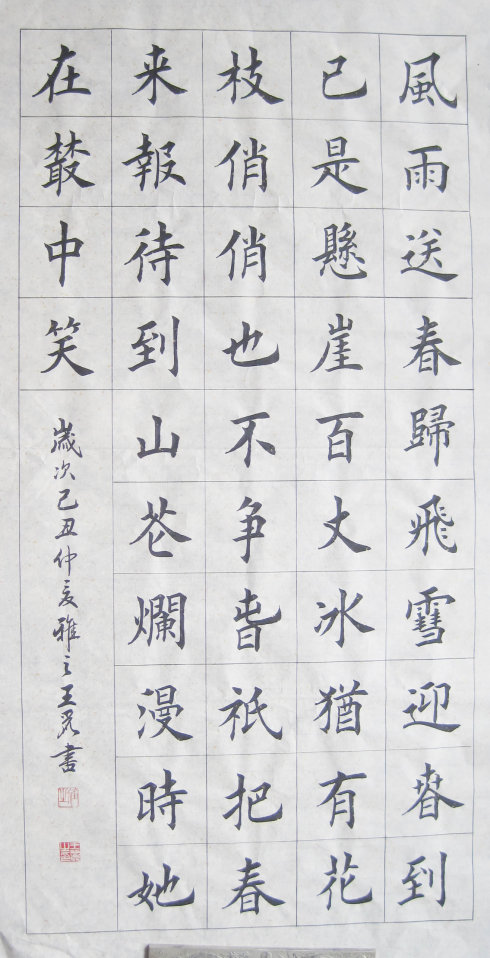 風雨送春歸飛雪迎春到
已是懸崖百丈冰猶有花
枝俏俏也不争旾祇把春
来報待到山花爛漫時她
在叢中笑
歲次己丑仲夏雅之王書